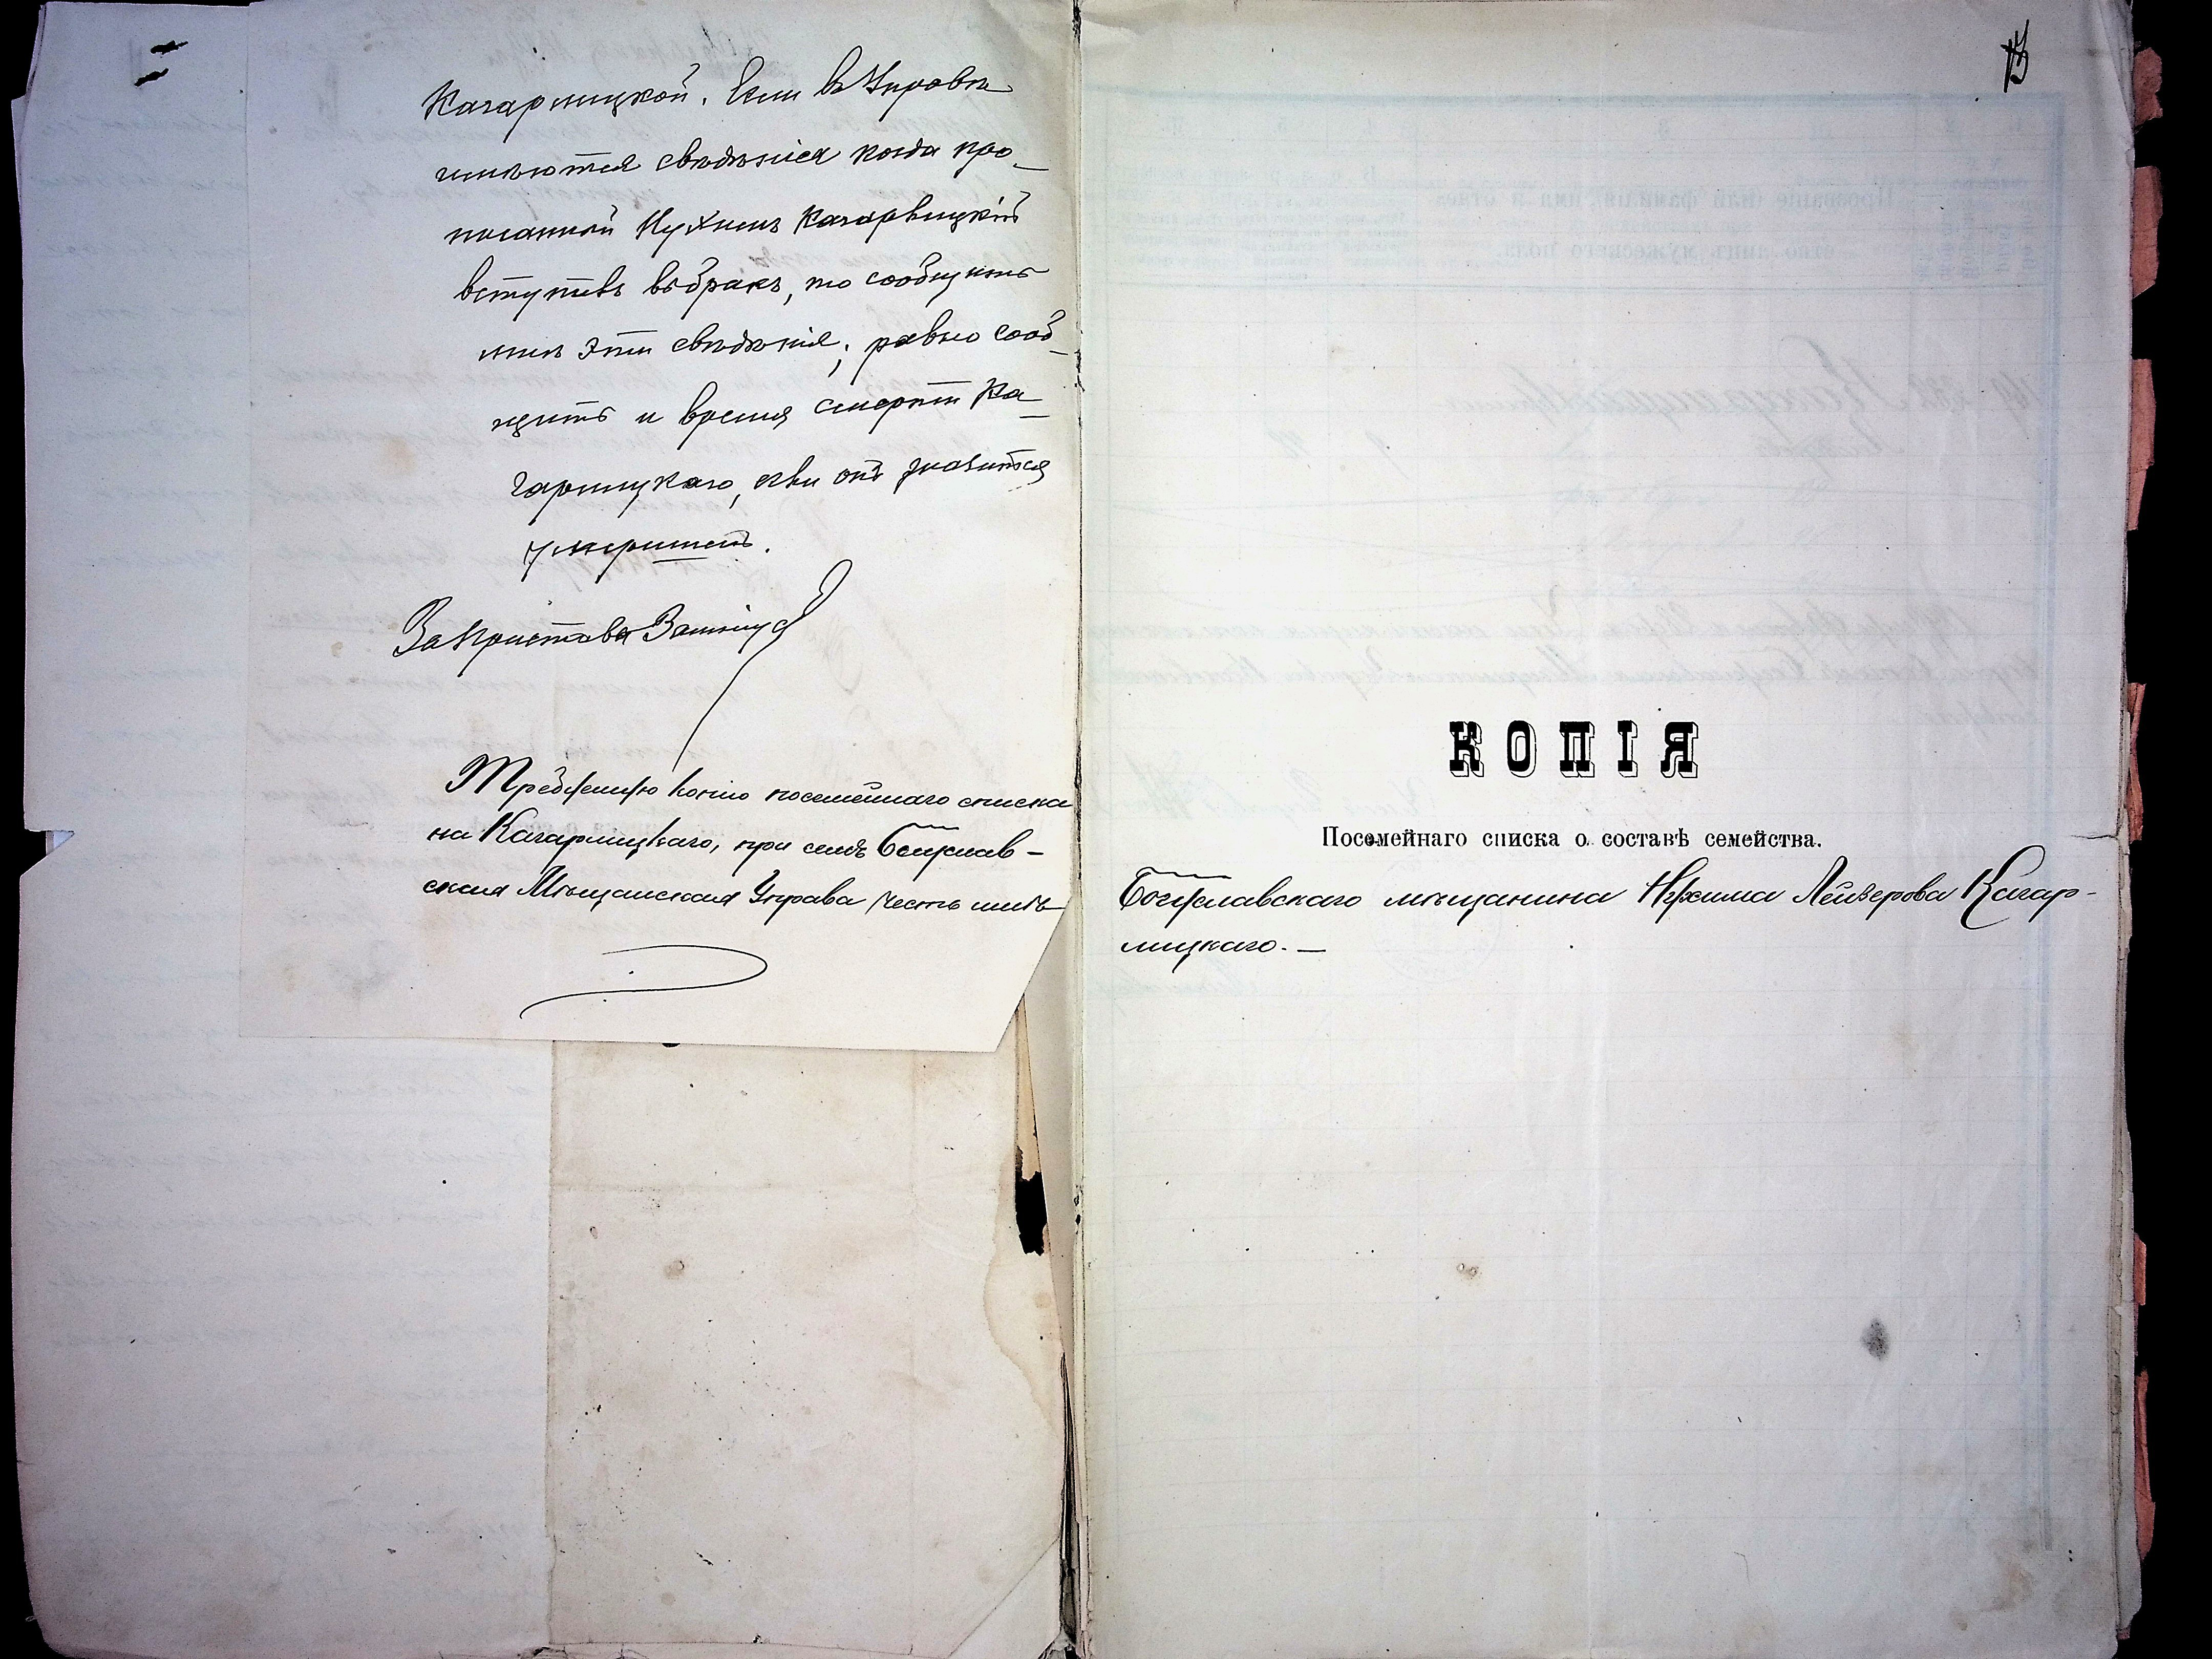 Кагарлицкой. Если в Управѣ
имѣются свѣдѣнія когда про-
писанный Нухимъ Кагарлицкій
вступивъ въ бракъ, то сообщить
мнѣ эти свѣдѣнія; равно сооб-
щить и время смерти Ка-
гарлицкаго, если онъ значится
умершимъ.
За Пристава
Требуемую копію посемейнаго списка
на Кагарлицкаго, при семъ Богуслав-
ская Мѣщанская Управа честь имѣетъ
13
КОПІЯ
Посемейнаго списка о составѣ семейства.
Богуславскаго мѣщанина Нухима Лейзерова Кагар-
лицкаго. —